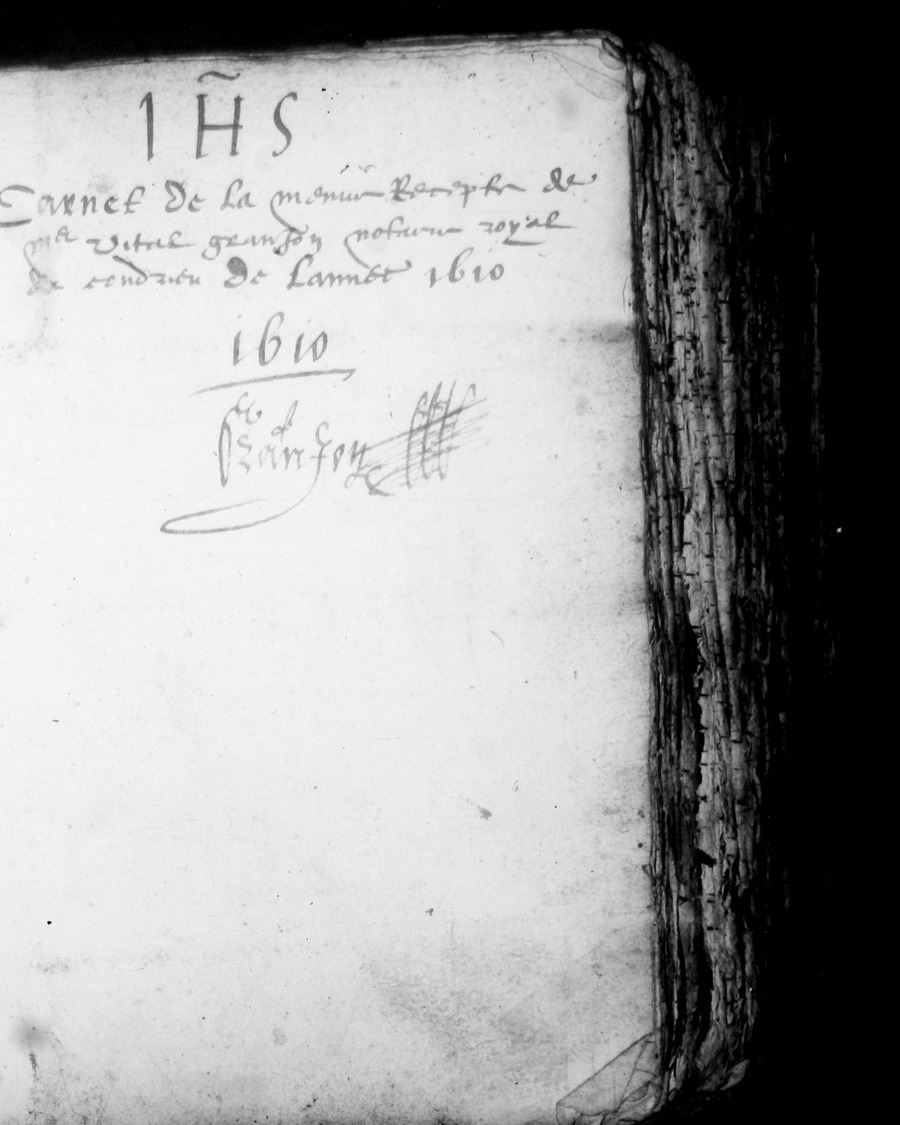 IHS
Carnet de la menue Recepte de
me vital granjon notaire royal
de condrieu de Lannee 1610
1610
Granjon